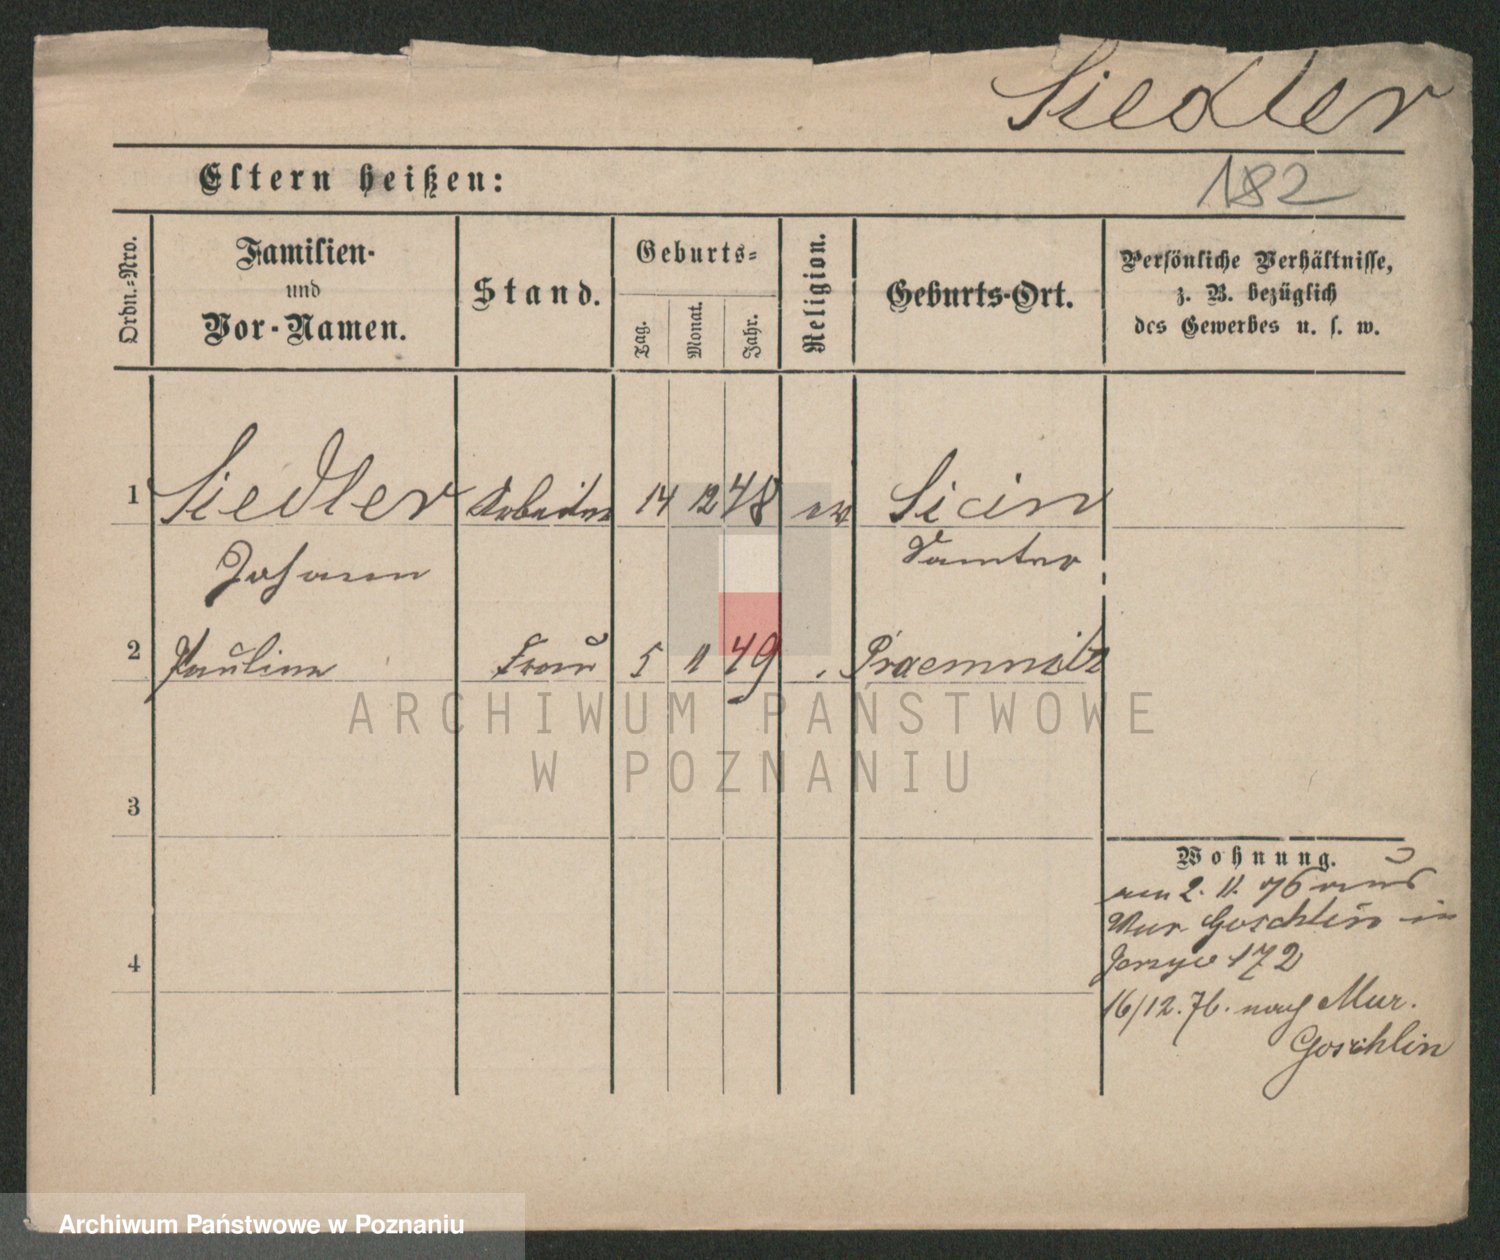 Siedler
182
Eltern heißen:
Ordn.-Nro.
Familien-
und
Vor-Namen.
Stand.
Geburts-
Tag.
Monat.
Jahr.
Religion.
Geburts-Ort.
Persönliche Verhältnisse,
z. B. bezüglich
des Gewerbes u. s. w.
1 Siedler Arbeiter 14 12 48 ev Sicin
Johann Samter
2 Pauline Frau 5 11 49 Praemnitz
ARCHIWUM PAŃSTWOWE
W POZNANIU
3
Wohnung.
am 2. 11. 76 aus
Mur Goschlin in
4
Jerzyce 172
16/12. 76. nach Mur.
Goschlin
Archiwum Państwowe w Poznaniu